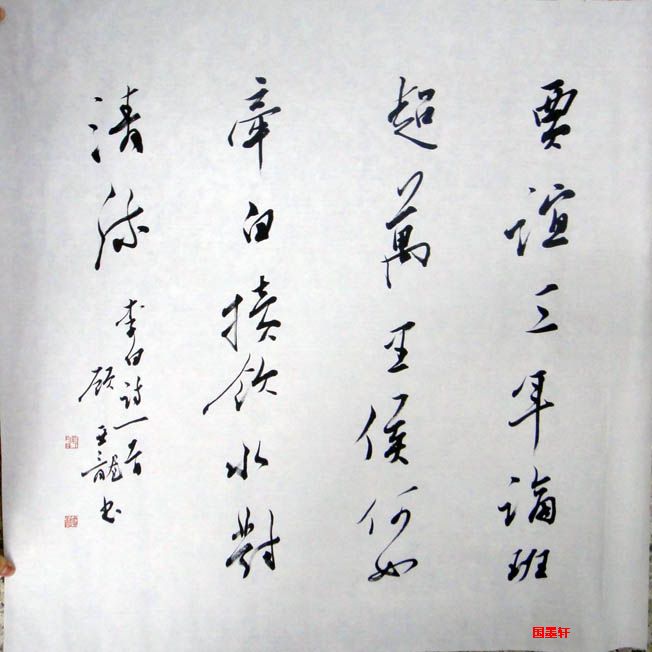 賈誼三年謫班
超萬里侯何如
牽白犢飲水對
清流
李白詩一首
顾玉龍书
国墨轩